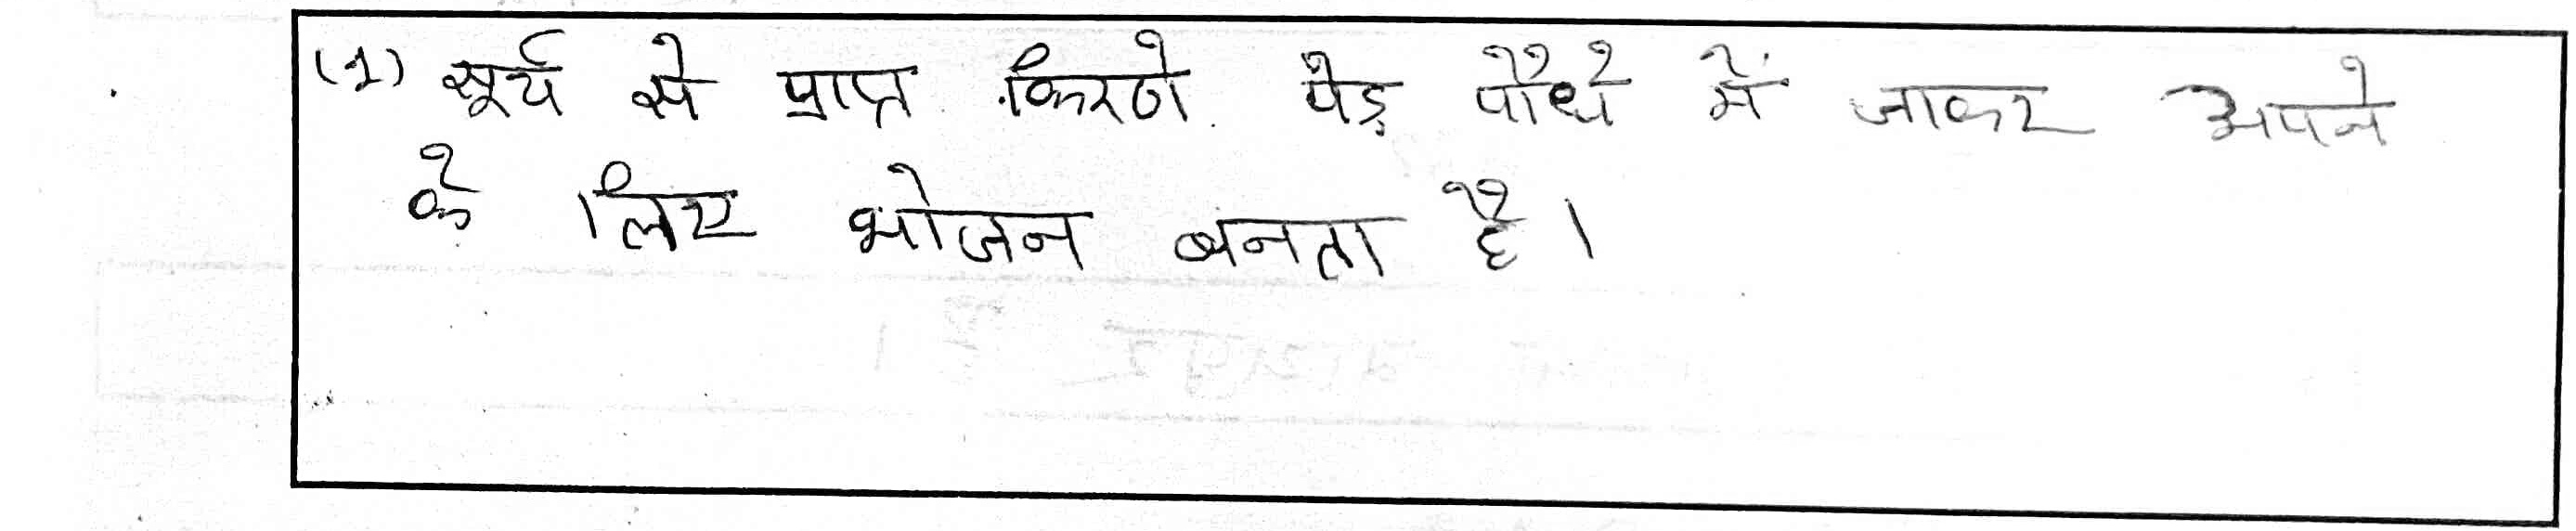 (1) सूर्य से प्राप्त किरणे पेड़ पौधे में जाकर अपने
के लिए भोजन बनता है।